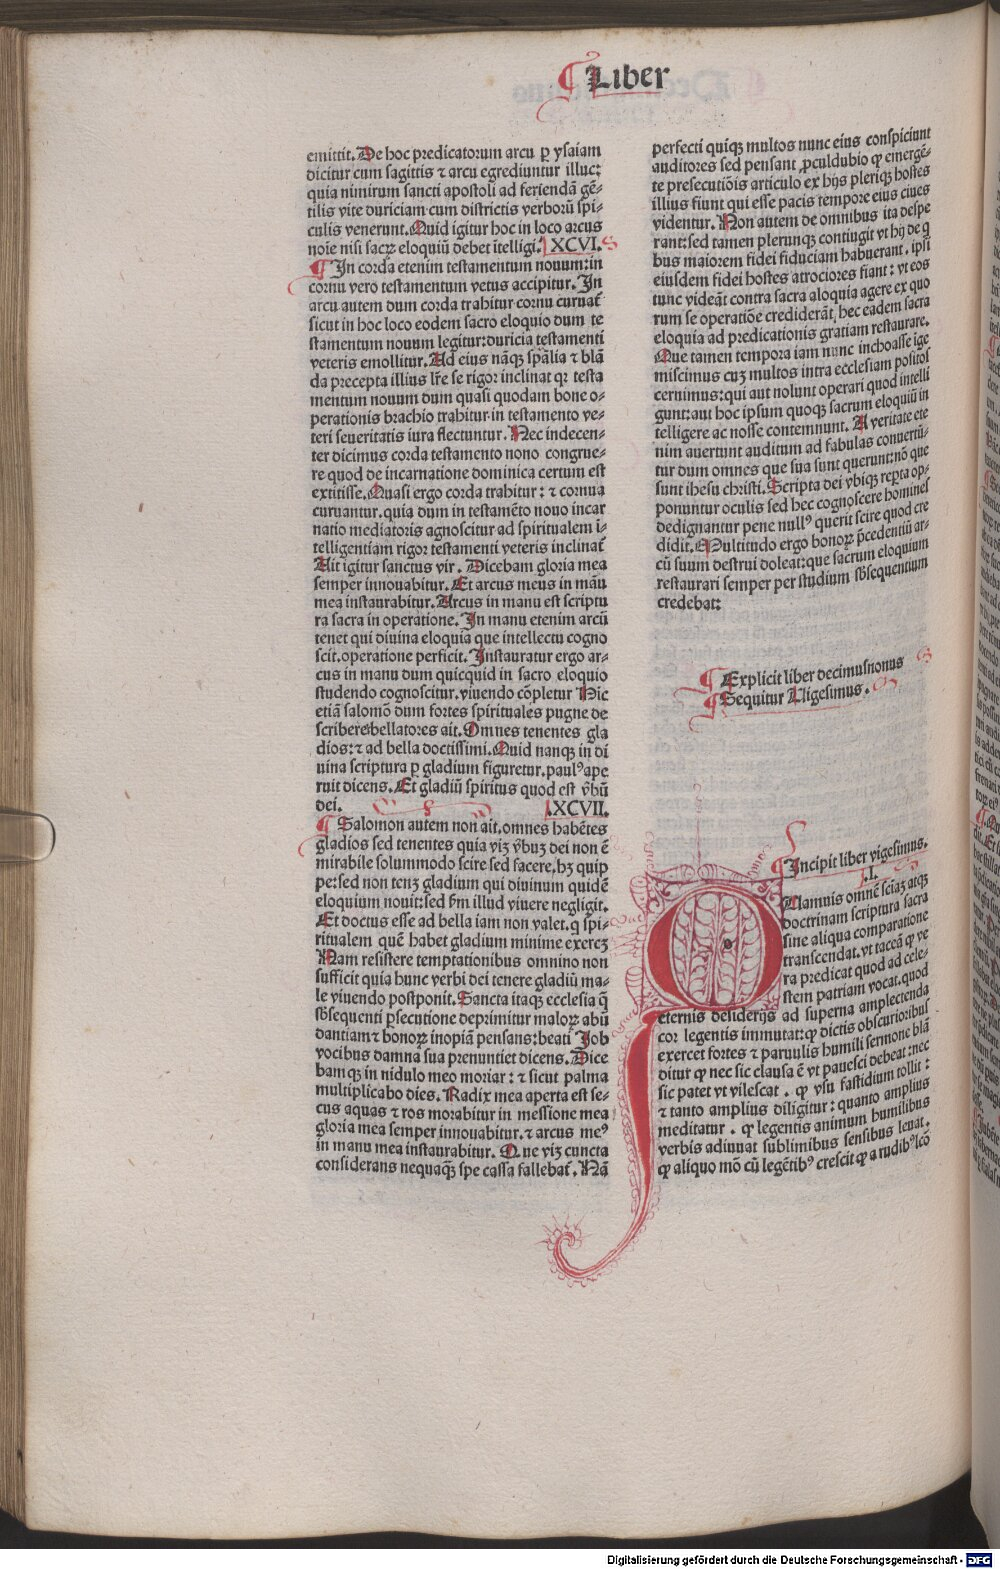 Liber
emittit. De hoc predicatorum arcu ꝑ ysaiam
dicitur cum sagittis ⁊ arcu egrediuntur illuc:
quia nimirum sancti apostoli ad feriendā gē-
tilis vite duriciam cum districtis verborū spi-
culis venerunt. Quid igitur hoc in loco arcus
noīe nisi sacrꝝ eloquiū debet ītelligi. XCVI.
In corda etenim testamentum nouum: in
cornu vero testamentum vetus accipitur. In
arcu autem dum corda trahitur cornu curuat᷑
sicut in hoc loco eodem sacro eloquio dum te
stamentum nouum legitur: duricia testamenti
veteris emollitur. Ad eius nāqꝫ spālia ⁊ blā
da precepta illius lr̄e se rigor inclinat qꝛ testa
mentum nouum dum quasi quodam bone o-
perationis brachio trahitur in testamento ve-
teri seueritatis iura flectuntur. Nec indecen-
ter dicimus corda testamento nono congrue-
re quod de incarnatione dominica certum est
extitisse. Quasi ergo corda trahitur: ⁊ cornua
curuantur. quia dum in testamēto nouo incar
natio mediatoris agnoscitur ad spiritualem ī-
telligentiam rigor testamenti veteris inclinat᷑
Ait igitur sanctus vir. Dicebam gloria mea
semper innouabitur. Et arcus meus in manu
mea instaurabitur. Arcus in manu est scriptu
ra sacra in operatione. In manu etenim arcū
tenet qui diuina eloquia que intellectu cogno
scit. operatione perficit. Instauratur ergo ar-
cus in manu dum quicquid in sacro eloquio
studendo cognoscitur. viuendo cōpletur Hic
etiā salomō dum fortes spirituales pugne de
scriberet bellatores ait. Omnes tenentes gla
dios: ⁊ ad bella doctissimi. Quid nanqꝫ in di
uina scriptura ꝑ gladium figuretur. paulꝰ ape
ruit dicens. Et gladiū spiritus quod est v̄bū
dei. XCVII.
Salomon autem non ait. omnes habētes
gladios sed tenentes quia viꝫ v̄buꝫ dei non ē
mirabile solummodo scire sed facere. hꝫ quip
pe: sed non tenꝫ gladium qui diuinum quidē
eloquium nouit: sed ẜm illud viuere negligit.
Et doctus esse ad bella iam non valet. q spi-
ritualem quē habet gladium minime exercꝫ
Nam resistere temptationibus omnino non
sufficit quia hunc verbi dei tenere gladiū ma-
le viuendo postponit. Sancta itaqꝫ ecclesia q̄
sb̄sequenti ꝑsecutione deprimitur maloꝝ abū
dantiam ⁊ bonoꝝ inopiā pensans: beati Job
vocibus damna sua prenuntiet dicens. Dice
bamqꝫ in nidulo meo moriar: ⁊ sicut palma
multiplicabo dies. Radix mea aperta est se-
cus aquas ⁊ ros morabitur in messione mea
gloria mea semper innouabitur. ⁊ arcus meꝰ
in manu mea instaurabitur. Que viꝫ cuncta
considerans nequaqꝫ spe cassa fallebat᷑. Nā
perfecti quiqꝫ multos nunc eius conspiciunt
auditores sed pensant ꝓculdubio ꝙ emergē-
te presecutiōis articulo ex hijs pleriqꝫ hostes
illius fiunt qui esse pacis tempore eius ciues
videntur. Non autem de omnibus ita despe
rant: sed tamen plerunqꝫ contingit vt hij de q̄
bus maiorem fidei fiduciam habuerant. ipsi
eiusdem fidei hostes atrociores fiant: vt eos
tunc videāt contra sacra aloquia agere ex quo
rum se operatiōe crediderāt hec eadem sacra
eloquia ad predicationis gratiam restaurare.
Que tamen tempora iam nunc inchoasse ige
miscimus cuꝫ multos intra ecclesiam positos
cernimus: qui aut nolunt operari quod intelli
gunt: aut hoc ipsum quoqꝫ sacrum eloquiū in
telligere ac nosse contemnunt. A veritate ete
nim auertunt auditum ad fabulas conuertū-
tur dum omnes que sua sunt querunt: nō que
sunt ihesu christi. Scripta dei vbiqꝫ reꝑta op-
ponuntur oculis sed hec cognoscere homines
dedignantur pene nullꝰ querit scire quod cre
didit. Multitudo ergo bonoꝝ p̄cedentiū ar-
cū suum destrui doleat: que sacrum eloquium
restaurari semper per studium sb̄sequentium
credebat:
Explicit liber decimusnonus
Sequitur Uigesimus.
Incipit liber vigesimus.
.I.
QUamuis omnē sciaꝫ atqꝫ
doctrinam scriptura sacra
sine aliqua comparatione
transcendat. vt taceā ꝙ ve
ra predicat quod ad cele-
stem patriam vocat. quod
eternis desiderijs ad superna amplectenda
cor legentis immutat: ꝙ dictis obscurioribus
exercet fortes ⁊ paruulis humili sermone blā
ditur ꝙ nec sic clausa ē vt pauesci debeat: nec
sic patet vt vilescat. ꝙ vsu fastidium tollit:
⁊ tanto amplius diligitur: quanto amplius
meditatur. ꝙ legentis animum humilibus
verbis adiuuat sublimibus sensibus leuat.
ꝙ aliquo mō cū legētibꝰ crescit ꝙ a rudibꝰ lcō
Digitalisierung gefördert durch die Deutsche Forschungsgemeinschaft - DFG